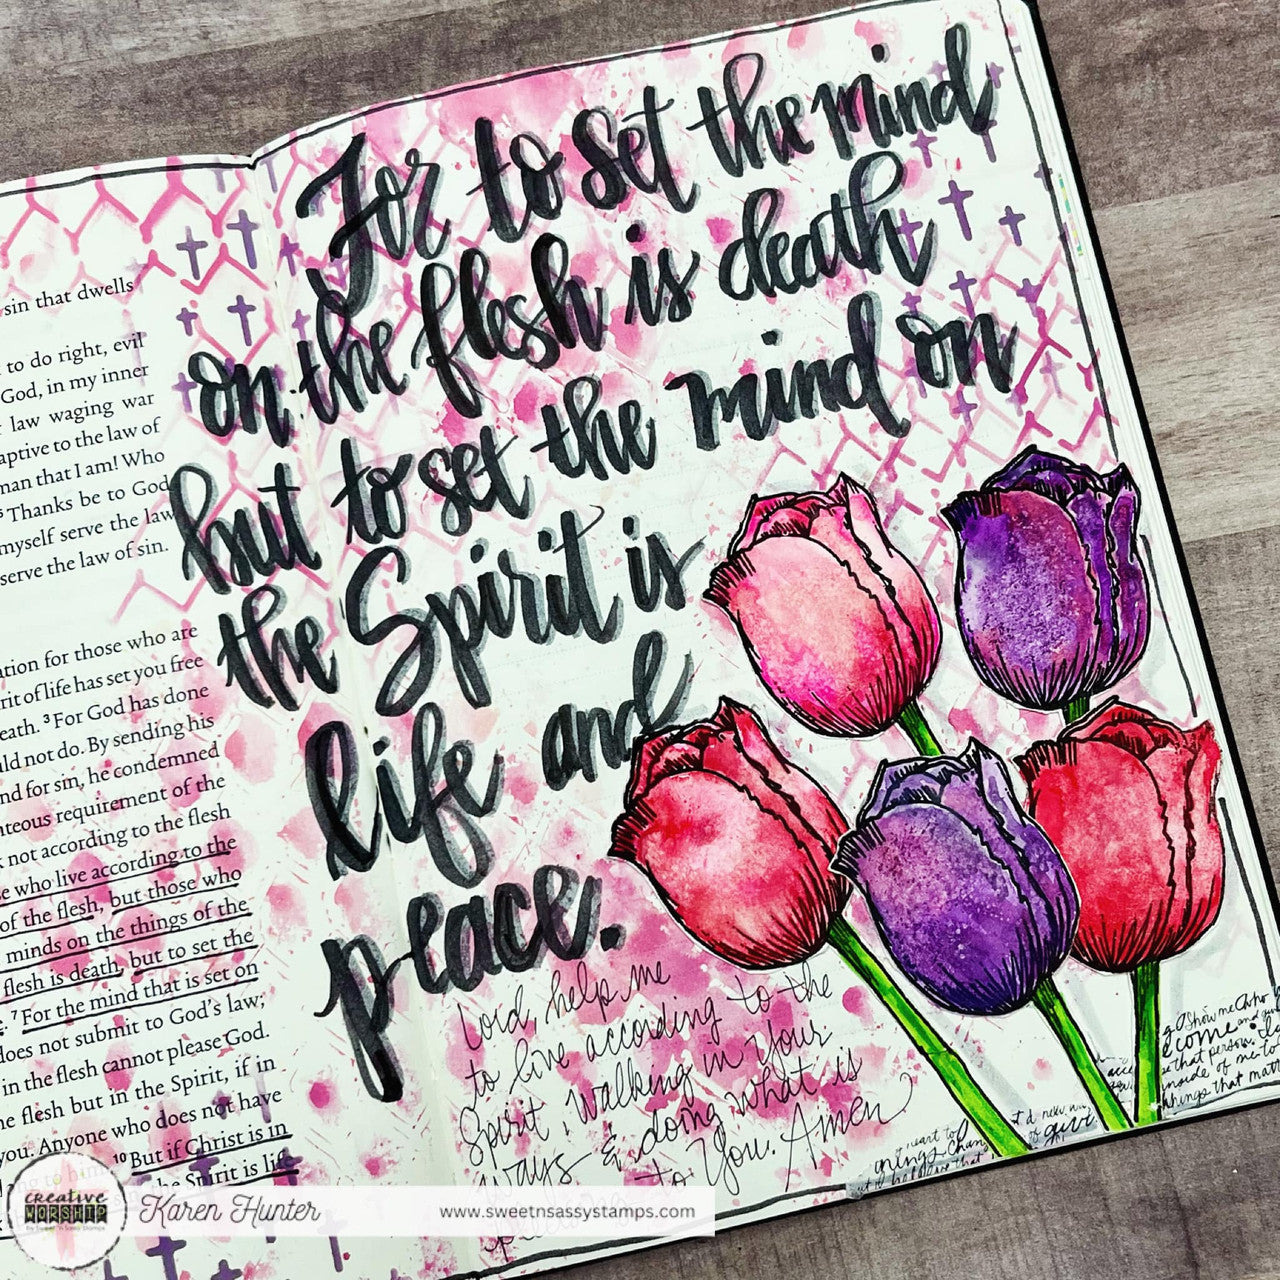 For to set the mind
on the flesh is death
but to set the mind on
the Spirit is
life and
peace.
sin that dwells
to do right, evil
God, in my inner
law waging war
captive to the law of
man that I am! Who
Thanks be to God
myself serve the law
serve the law of sin.
for those who are
of life has set you free
death. 3 For God has done
not do. By sending his
and for sin, he condemned
requirement of the
not according to the flesh
who live according to the
of the flesh, but those who
minds on the things of the
flesh is death, but to set the
7 For the mind that is set on
does not submit to God's law;
in the flesh cannot please God.
flesh but in the Spirit, if in
you. Anyone who does not have
10 But if Christ is in
the Spirit is life
Lord, help me
to live according to the
Spirit, walking in Your
ways & doing what is
to You. Amen
Show me
come and
that person.
inside of me to
things that
new
give
heart to
things
that
creative
WORSHIP
By Sweet 'n Sassy Stamps
Karen Hunter
www.sweetnsassystamps.com